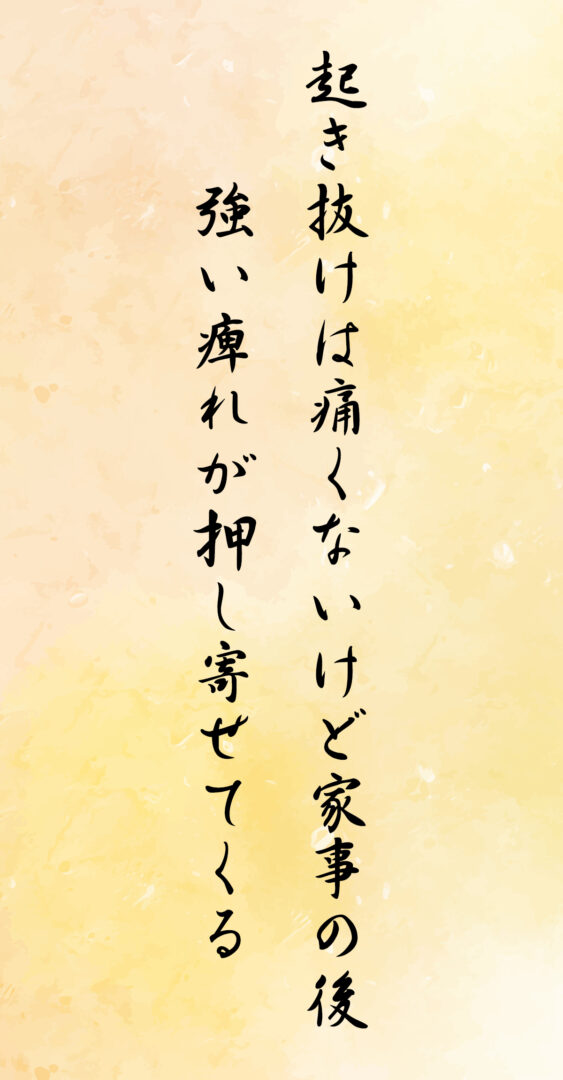 起き抜けは痛くないけど家事の後
強い痺れが押し寄せてくる